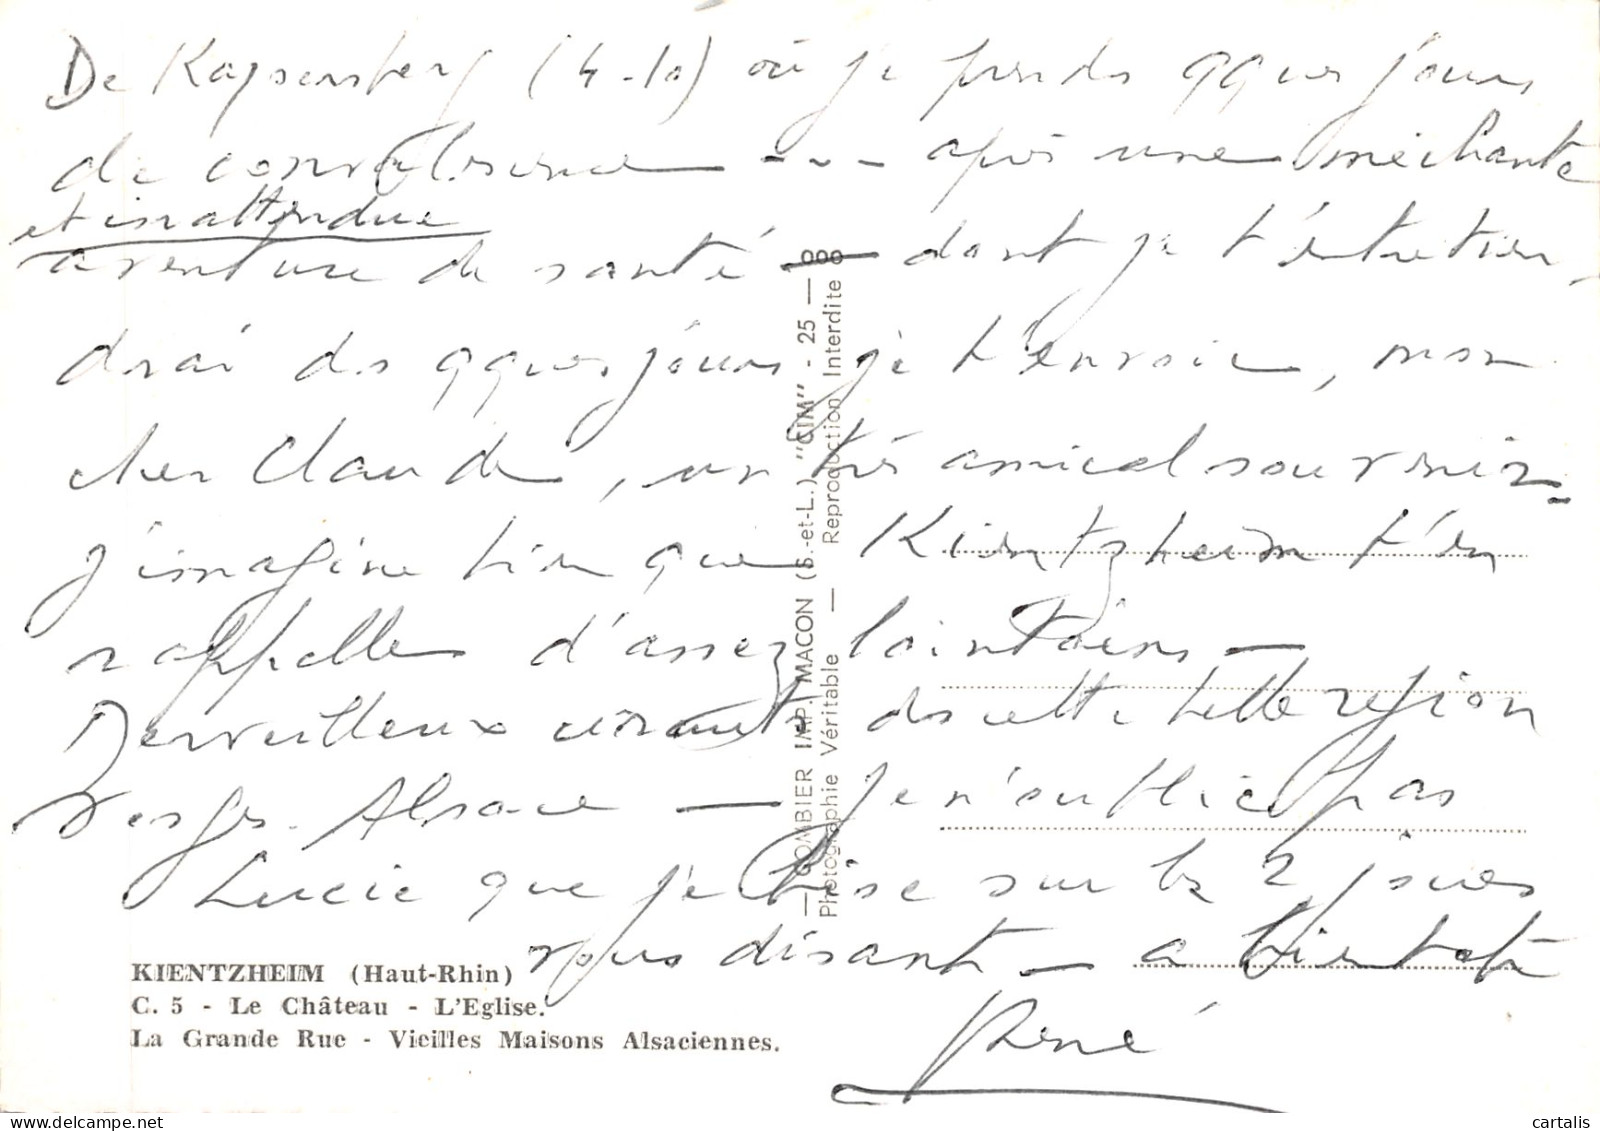 De Kaysersberg (4-10) où je prends qques jours
de convalescence - - - après une méchante
et inattendue
aventure de santé — dont je t'entretien-
drai ds qques jours je t'envoie, mon
cher Claude, un très amical souvenir -
J'imagine bien que Kientzheim t'en
rappelle d'assez lointains —
Merveilleux circuits ds cette belle région
Vosges-Alsace — Je n'oublie pas
Lucie que je bise sur les 2 joues
vous disant — à bientôt
René
KIENTZHEIM (Haut-Rhin)
C. 5 - Le Château - L'Eglise.
La Grande Rue - Vieilles Maisons Alsaciennes.
— COMBIER IMP. MACON (S.-et-L.) "CIM" - 25 — 000
Photographie Véritable — Reproduction Interdite
cartalis